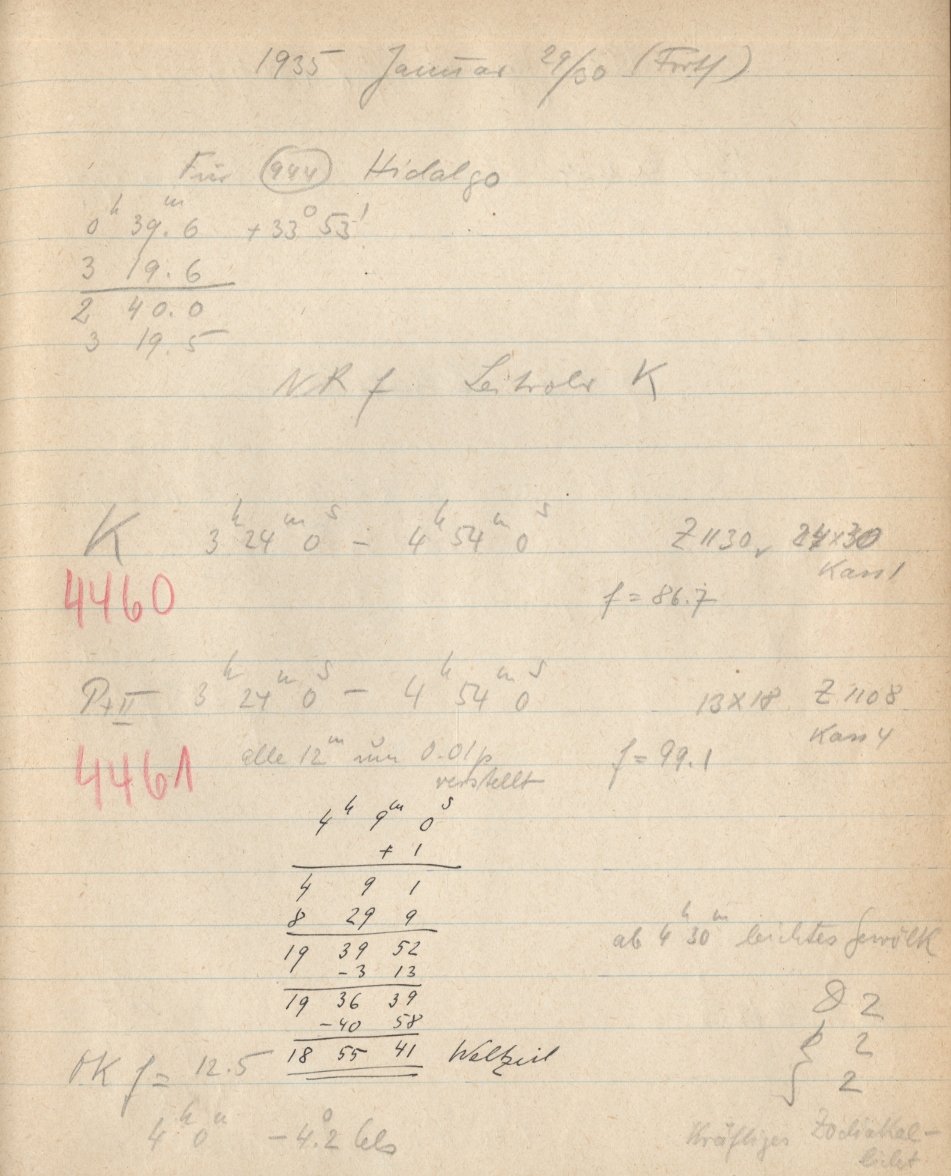 1935 Januar 29/30 (Forts)
Für (944) Hidalgo
0h 39m.6 +33° 53'
3 19.6
2 40.0
3 19.5
NR f Leitrohr K
K 3h 24m 0s – 4h 54m 0s Z 1130, 24x30
Kass 1
4460 f = 86.7
P+II 3h 24m 0s – 4h 54m 0s 13x18 Z 1108
Kass 4
4461 alle 12m um 0.01p f = 99.1
verstellt
4h 9m 0s
+ 1
4 9 1
8 29 9
19 39 52
-3 13
19 36 39
-40 58
18 55 41 Weltzeit
ab 4h 30m leichtes Gewölk
2
2
2
OK f = 12.5
4h 0m -4.°2 Cels
Kräftiges Zodiakal-
licht